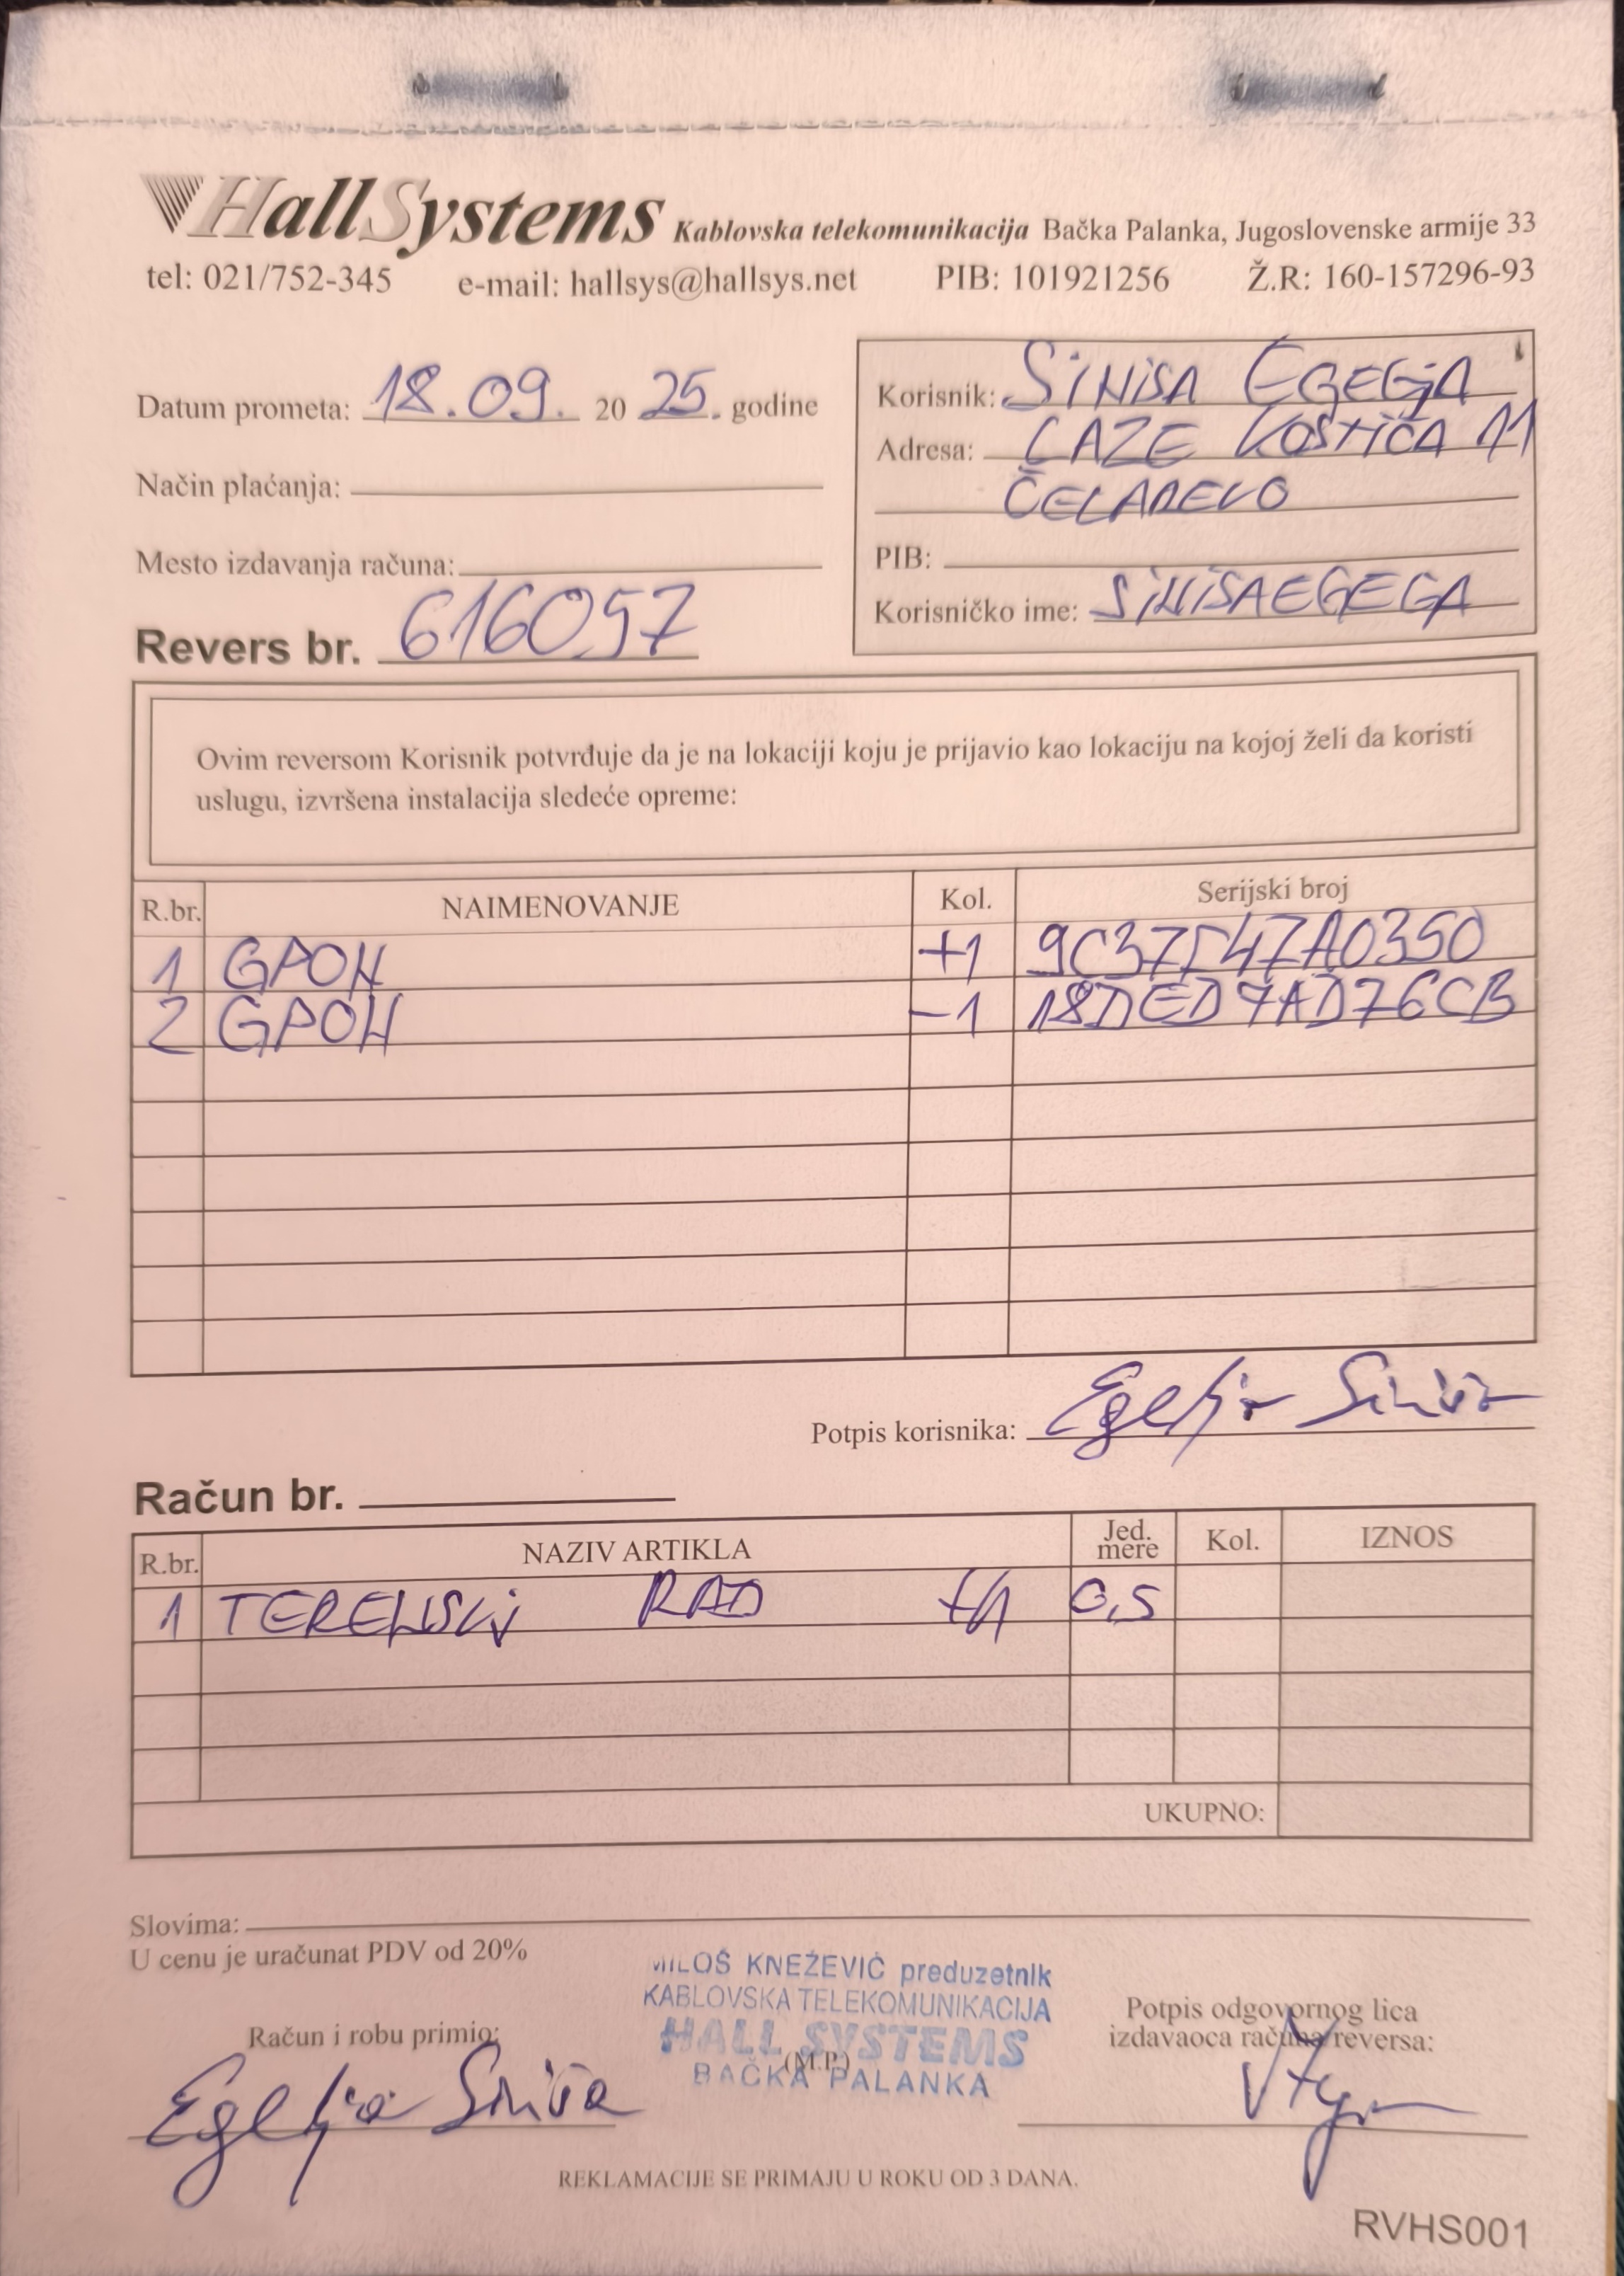 HallSystems Kablovska telekomunikacija Bačka Palanka, Jugoslovenske armije 33
tel: 021/752-345 e-mail: hallsys@hallsys.net PIB: 101921256 Ž.R: 160-157296-93
Datum prometa: 18.09. 20 25. godine
Način plaćanja:
Mesto izdavanja računa:
Revers br. 616057
Korisnik: SINISA EGEGJA
Adresa: LAZE KOSTIĆA 11
ČELAREVO
PIB:
Korisničko ime: SINISAEGEGA
Ovim reversom Korisnik potvrđuje da je na lokaciji koju je prijavio kao lokaciju na kojoj želi da koristi
uslugu, izvršena instalacija sledeće opreme:
R.br. NAIMENOVANJE Kol. Serijski broj
1 GPON +1
2 GPON -1 18DED7AD76CB
Potpis korisnika: Egelja Siniša
Račun br.
R.br. NAZIV ARTIKLA Jed. mere Kol. IZNOS
1 TERENSKI RAD +1 0,5
UKUPNO:
Slovima:
U cenu je uračunat PDV od 20%
MILOŠ KNEŽEVIĆ preduzetnik
KABLOVSKA TELEKOMUNIKACIJA
HALL SYSTEMS
(M.P.)
BAČKA PALANKA
Račun i robu primio:
Egelja Siniša
Potpis odgovornog lica
izdavaoca računa/reversa:
REKLAMACIJE SE PRIMAJU U ROKU OD 3 DANA.
RVHS001